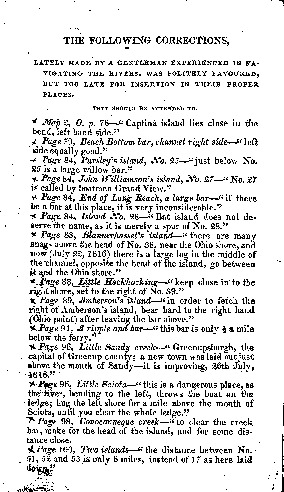 THE FOLLOWING CORRECTIONS,
LATELY MADE BY A GENTLEMAN EXPERIENCED IN NA-
VIGATING THE RIVERS, WAS POLITELY FAVOURED,
BUT TOO LATE FOR INSERTION IN THEIR PROPER
PLACES.
THEY SHOULD BE ATTENDED TO.
Map 2, O. p. 76—“ Captina island lies close in the
bend, left hand side.”
Page 79, Beach Bottom bar, channel right side—“left
side equally good.”
Page 84, Pursley's island, No. 25—“just below No.
25 is a large willow bar.”
Page 84, John Williamson's island, No. 27—“ No. 27
is called by boatmen Grand View.”
Page 84, End of Long Reach, a large bar—“ if there
be a bar at this place, it is very inconsiderable.”
Page 84, Island No. 28—“ Bat island does not de-
serve the name, as it is merely a spur of No. 28.”
Page 88, Blannerhasset's island—“ there are many
snags above the head of No. 38, near the Ohio shore, and
now (July 22, 1816) there is a large log in the middle of
the channel, opposite the head of the island, go between
it and the Ohio shore.”
Page 88, Little Hockhocking—“ keep close in to the
right shore, not to the right of No. 39.”
Page 89, Amberson's island—“ in order to fetch the
right of Amberson's island, bear hard to the right hand
(Ohio point) after leaving the bar above.”
Page 91, A ripple and bar—“ this bar is only ½ a mile
below the ferry.”
Page 95, Little Sandy creek—“ Greenupsburgh, the
capital of Greenup county; a new town was laid out just
above the mouth of Sandy—it is improving, 26th July,
1816.”
Page 96, Little Sciota—“ this is a dangerous place, as
the river, bending to the left, throws the boat on the
ledge; hug the left shore for a mile above the mouth of
Sciota, until you clear the whole ledge.”
Page 98, Conoconneque creek—“ to clear the creek
bar, make for the head of the island, and for some dis-
tance close.
Page 100, Two islands—“ the distance between No.
51, 52 and 53 is only 8 miles, instead of 17 as here laid
down.”